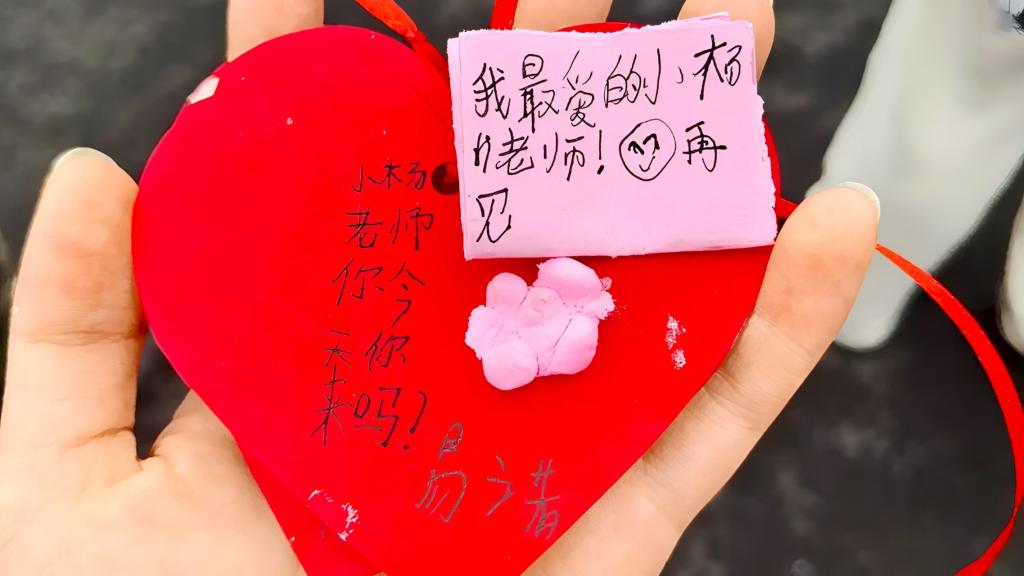 我最爱的小杨
老师!再
见
小杨
老师
你今
天你
来吗?
易